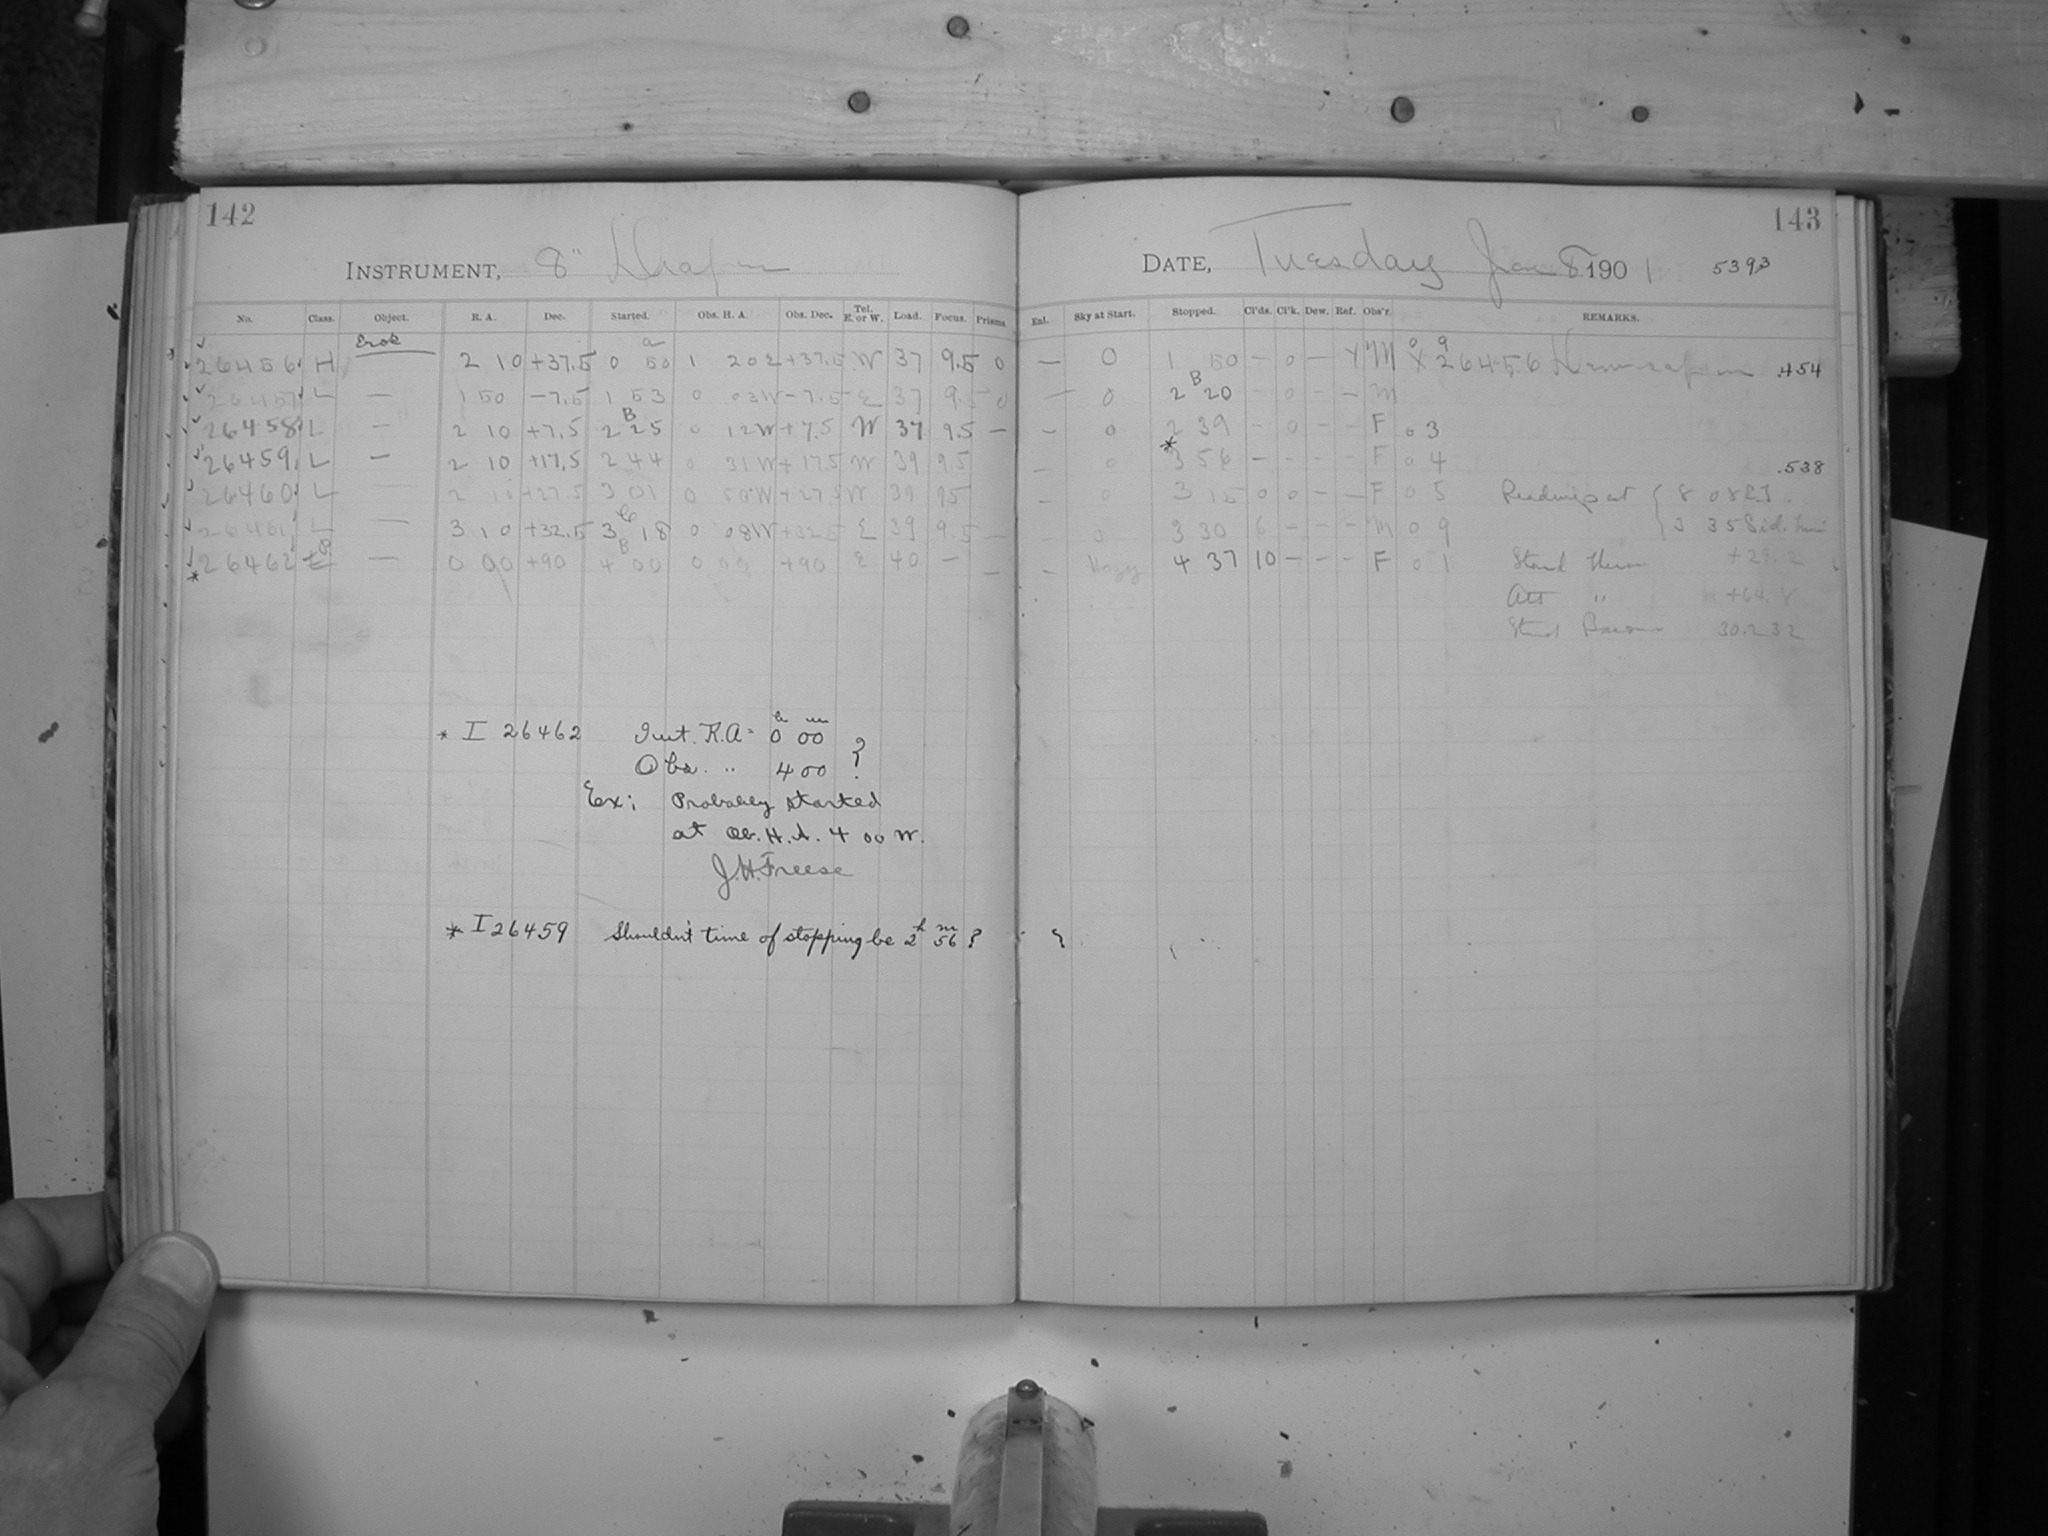 142
INSTRUMENT, 8" Draper
No. Class. Object. R. A. Dec. Started. Obs. H. A. Obs. Dec. Tel. E. or W. Load. Focus. Prisms.
Eros
26456 H 2 10 +37.5 0 50 1 20 E +37.5 W 37 9.5 0
26457 L — 1 50 -7.5 1 53 0 03 W -7.5 E 37 9.5 0
26458 L — 2 10 +7.5 2 25 0 12 W +7.5 W 37 9.5 —
26459 L — 2 10 +17.5 2 44 0 31 W +17.5 W 39 9.5
26460 L — 2 10 +27.5 3 01 0 50 W +27.5 W 39 95
26461 L — 3 10 +32.5 3 18 0 08 W +32.5 E 39 9.5 —
* 26462 — 0 00 +90 4 00 0 00 +90 E 40 — —
* I 26462 Inst. R.A = 0 h 00 m
Obs. " 4 00 ?
Ex: Probably started
at Ob. H. A. 4 00 W.
J.H. Freese
* I 26459 Shouldn't time of stopping be 2 h 56 m ?
143
DATE, Tuesday Jan 8 1901 5393
Enl. Sky at Start. Stopped. Cl'ds. Cl'k. Dew. Ref. Obs'r. REMARKS.
— 0 1 50 — 0 — Y M 26456 .454
— 0 2 20 — 0 — — M
— 0 2 39 — 0 — — F 0 3
— 0 * 3 56 — — — — F 0 4 .538
— 0 3 15 0 0 — — F 0 5 Readings at { 8 08
— 0 3 30 6 — — — M 0 9 3 35 Sid. time
— Hazy 4 37 10 — — — F 0 1 Stand Ther +29.2
Att " +64.8
Stand Barom 30.232